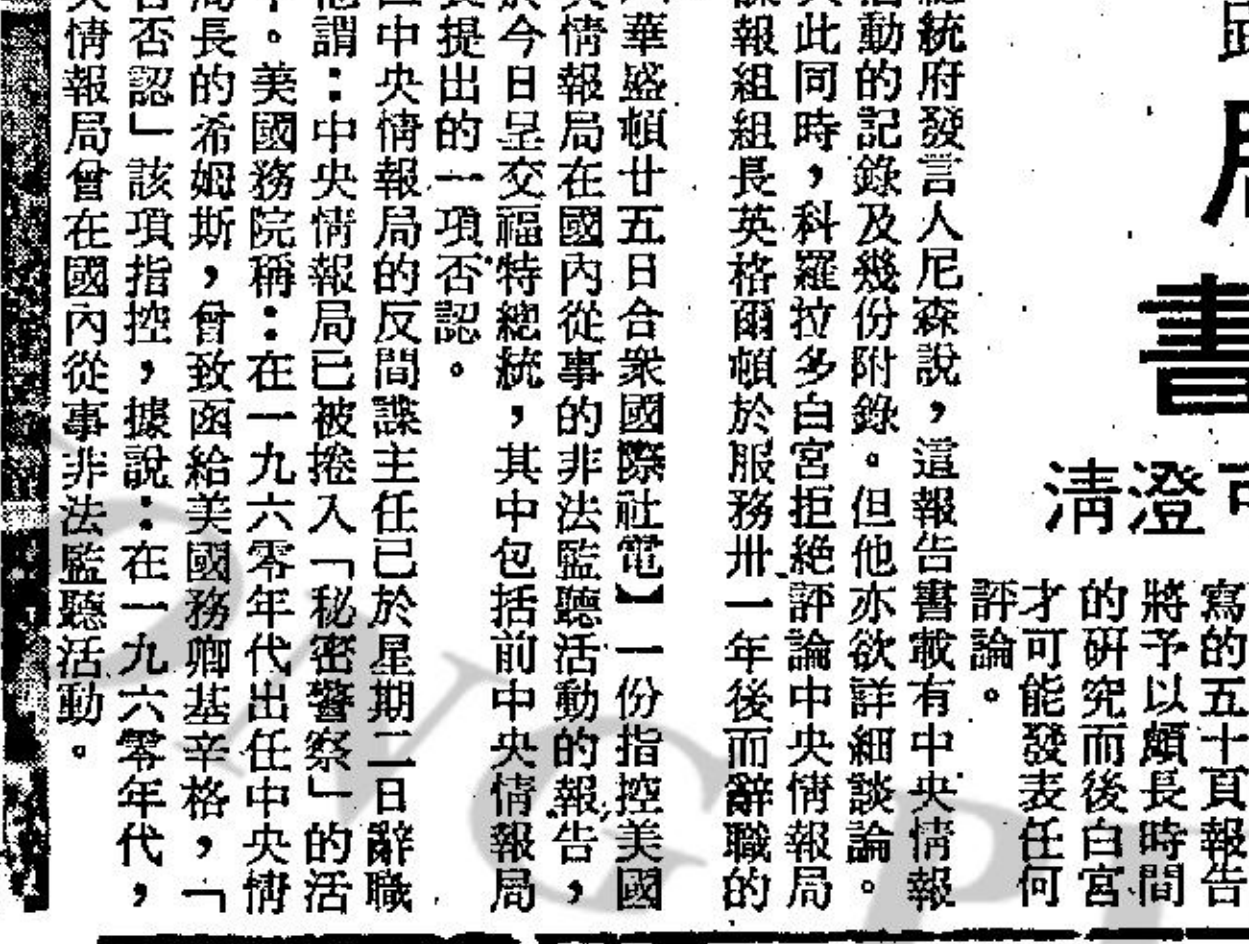 局
書
可澄清
寫的五十頁報告
將予以頗長時間
的研究而後白宮
才可能發表任何
評論。
統府發言人尼森說，這報告書載有中央情報
活動的記錄及幾份附錄。但他亦欲詳細談論。
此同時，科羅拉多白宮拒絕評論中央情報局
諜報組組長英格爾頓於服務卅一年後而辭職的
華盛頓廿五日合衆國際社電】一份指控美國
情報局在國內從事的非法監聽活動的報告，
於今日呈交福特總統，其中包括前中央情報局
提出的一項否認。
中央情報局的反間諜主任已於星期二日辭職
他謂：中央情報局已被捲入「秘密警察」的活
。美國務院稱：在一九六零年代出任中央情
局長的希姆斯，曾致函給美國務卿基辛格，「
否認」該項指控，據說：在一九六零年代，
情報局曾在國內從事非法監聽活動。